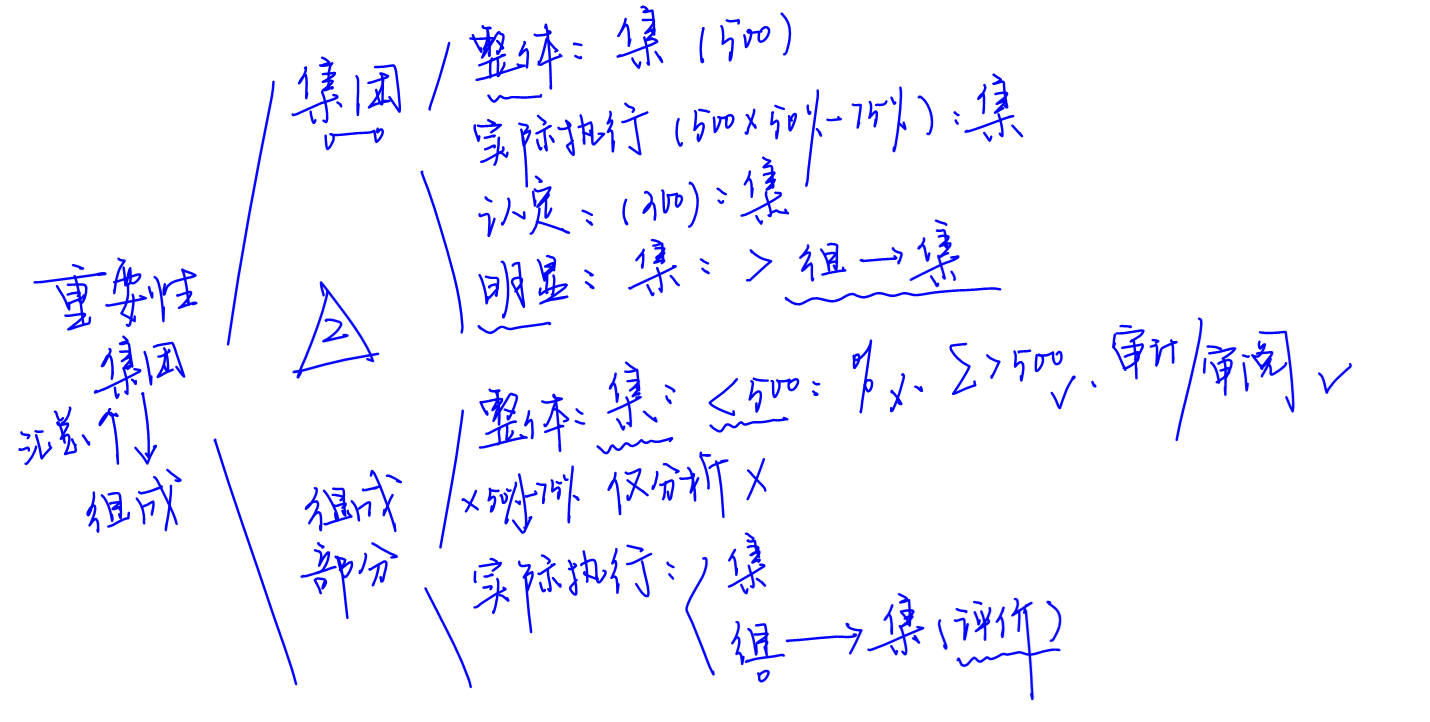 重要性
集团
汇总
组成
集团
整体：集（500）
实际执行（500×50%-75%）：集
认定：（300）：集
明显：集：> 组→集
2
组成
部分
整体：集：<500：%×、Σ>500✓、审计/审阅✓
×50%-75% 仅分析×
实际执行：集
组→集（评价）